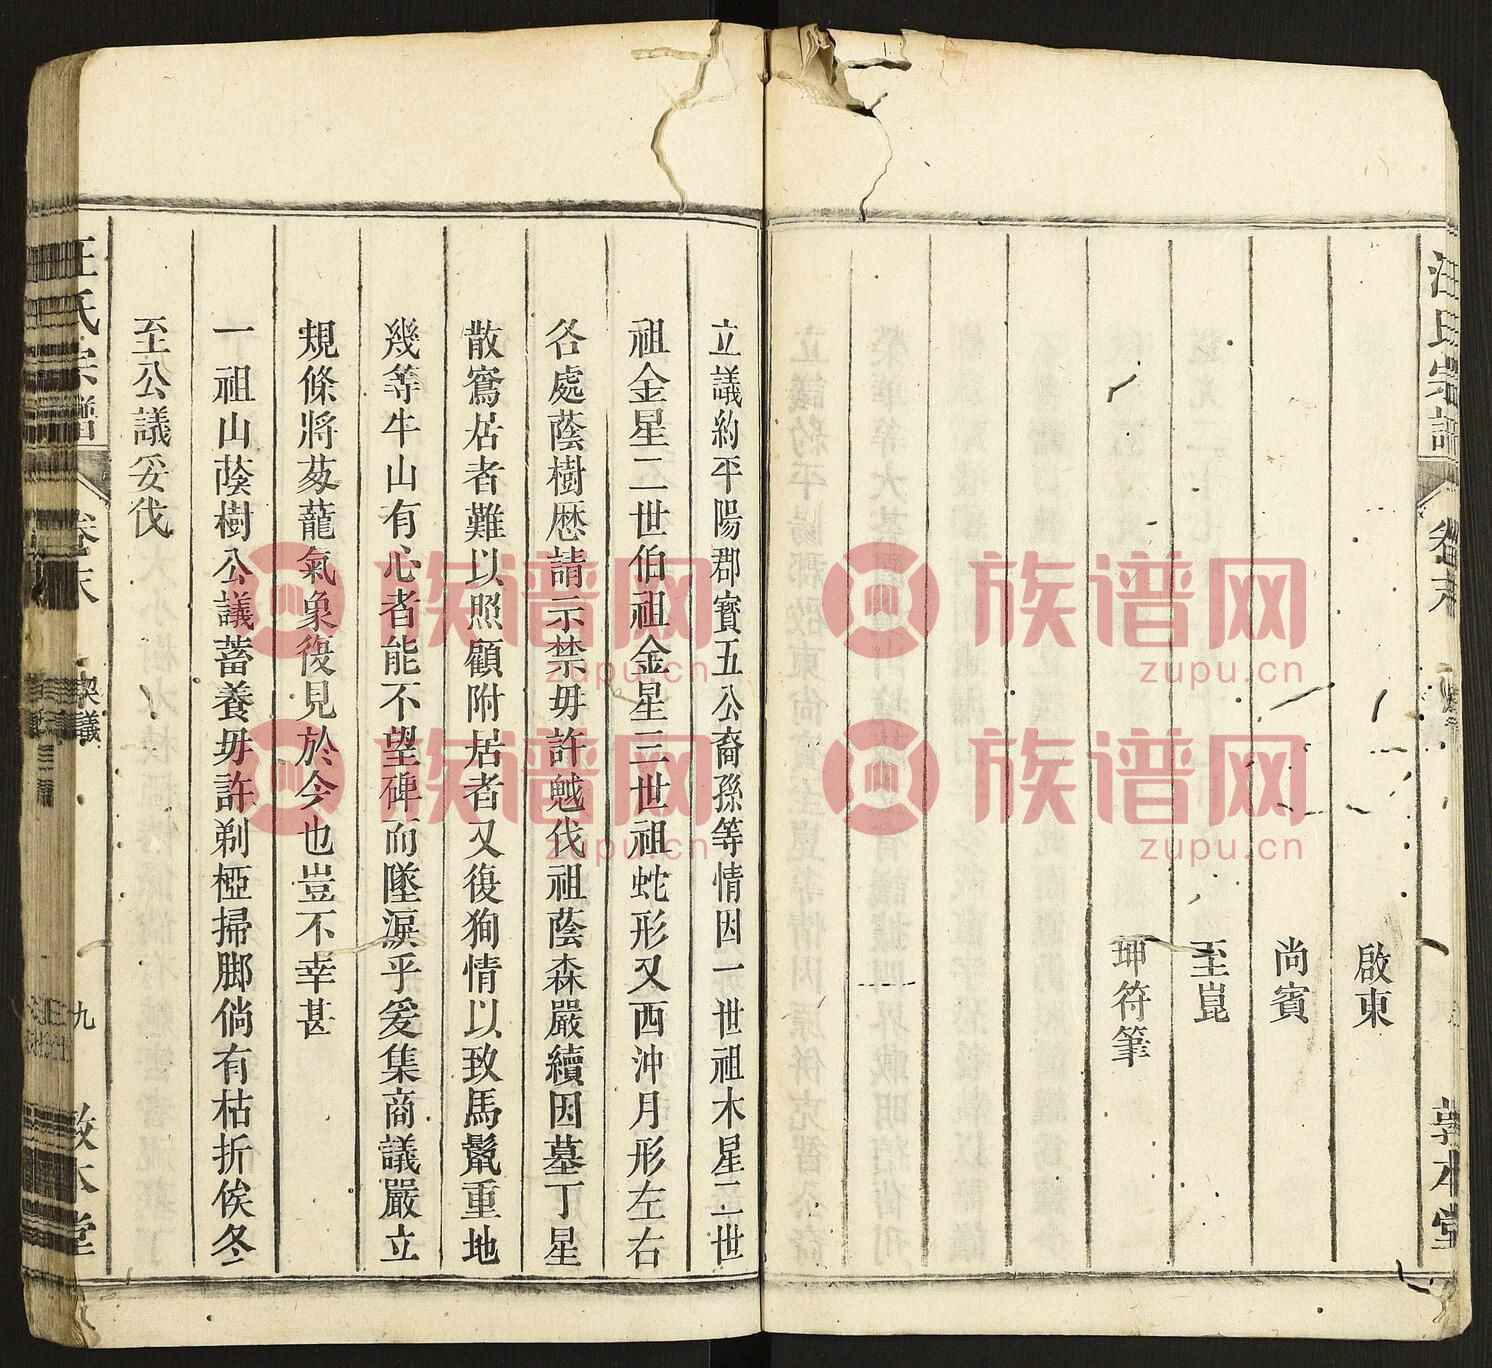 汪氏宗譜
卷末
敦本堂
啟東
尚賓
至崑
坤符筆
立議約平陽郡寶五公裔孫等情因一世祖木星二世
祖金星二世伯祖金星三世祖蛇形又西沖月形左右
各處蔭樹歷請示禁毋許戉伐祖蔭森嚴續因墓丁星
散窵居者難以照顧附居者又復狥情以致馬鬣重地
幾等牛山有心者能不望碑而墜淚乎爰集商議嚴立
規條將葱蘢氣象復見於今也豈不幸甚
一祖山蔭樹公議蓄養毋許剃椏掃脚倘有枯折俟冬
至公議妥伐
汪氏宗譜
卷末
契議
九
敦本堂
族谱网
zupu.cn
族谱网
zupu.cn
族谱网
zupu.cn
族谱网
zupu.cn